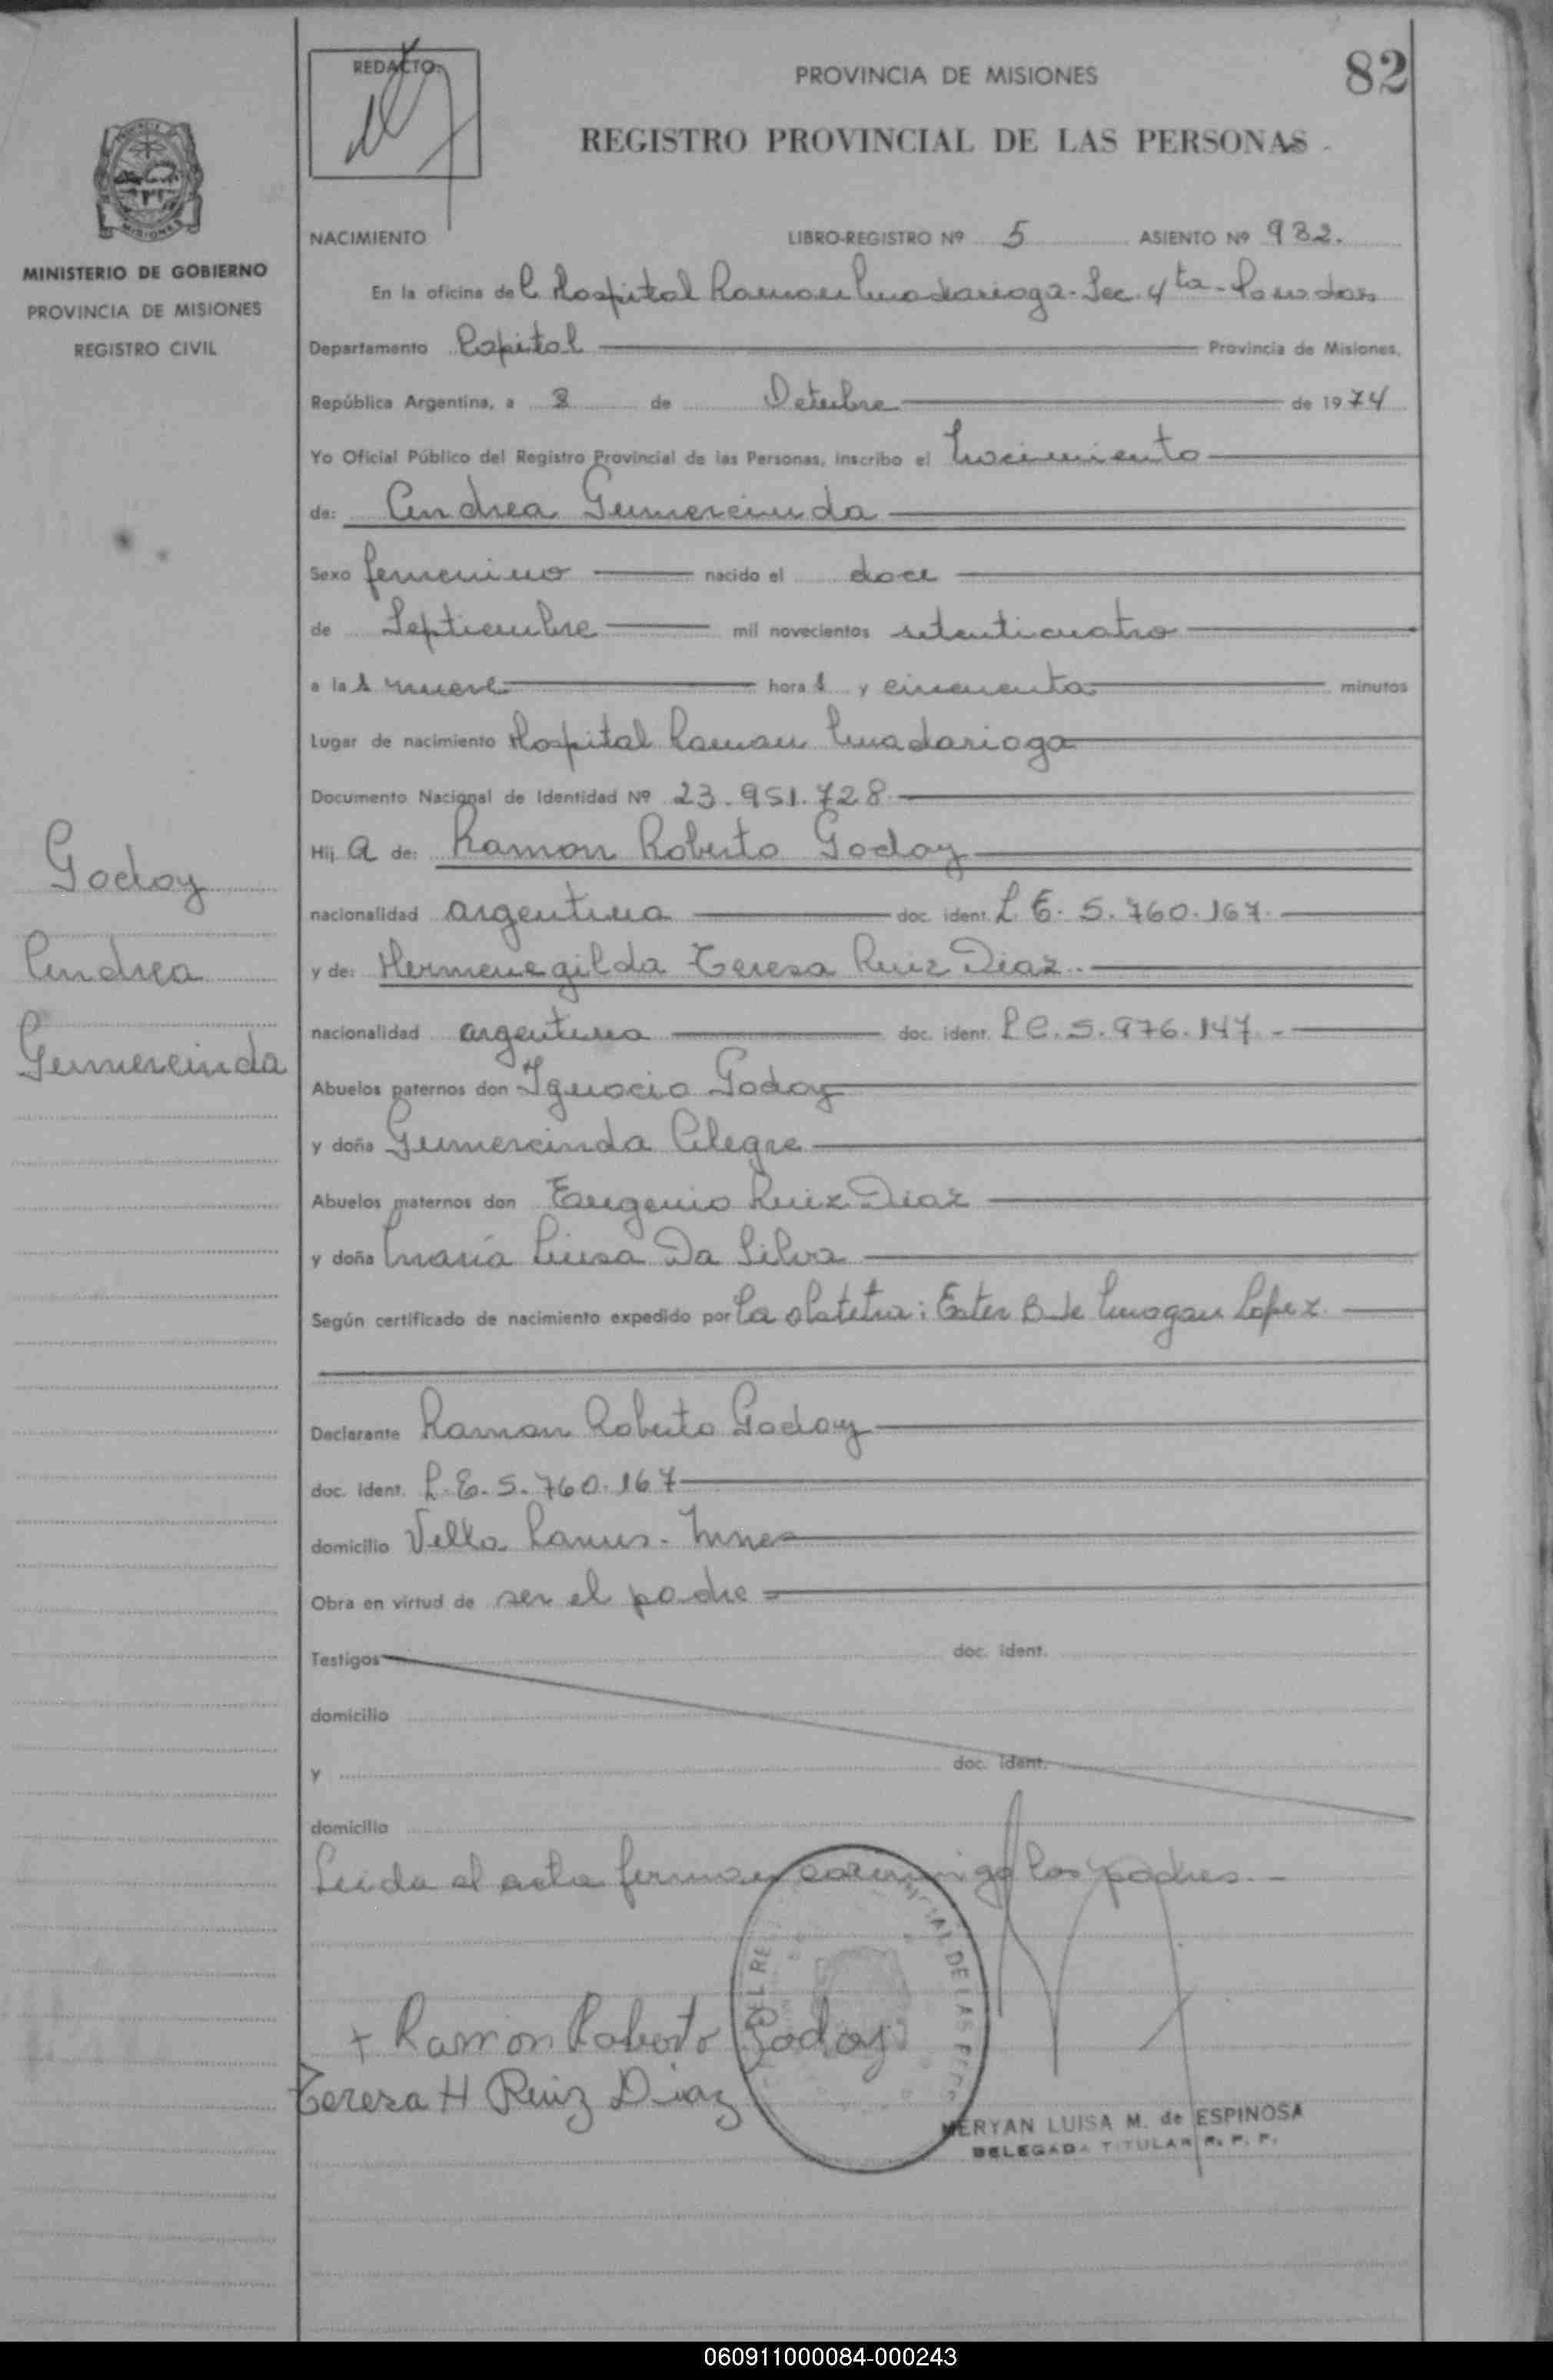 REDACTO:
PROVINCIA DE MISIONES
82
REGISTRO PROVINCIAL DE LAS PERSONAS
MISIONES
MINISTERIO DE GOBIERNO
PROVINCIA DE MISIONES
REGISTRO CIVIL
NACIMIENTO LIBRO-REGISTRO Nº 5 ASIENTO Nº 982.
En la oficina del Hospital Ramon Madariaga - Sec. 4ta - Posadas
Departamento Capital Provincia de Misiones,
República Argentina, a 8 de Octubre de 1974
Yo Oficial Público del Registro Provincial de las Personas, inscribo el Nacimiento
de: Andrea Gumercinda
Sexo femenino nacido el doce
de Septiembre mil novecientos setenticuatro
a las nueve horas y cincuenta minutos
Lugar de nacimiento Hospital Ramon Madariaga
Documento Nacional de Identidad Nº 23.951.728
Hija de: Ramon Roberto Godoy
nacionalidad argentina doc. ident. L.E. 5.760.167.
y de: Hermenegilda Teresa Ruiz Diaz.
nacionalidad argentina doc. ident. L.C. 5.976.147.-
Abuelos paternos don Ignacio Godoy
y doña Gumercinda Alegre
Abuelos maternos don Eugenio Ruiz Diaz
y doña María Luisa Da Silva
Según certificado de nacimiento expedido por La obstetra: Ester B de Lopez
Declarante Ramon Roberto Godoy
doc. ident. L.E. 5.760.167
domicilio Villa Lanus - Mnes
Obra en virtud de ser el padre
Testigos doc. ident.
domicilio
y doc. ident.
domicilio
Leida el acta firman conmigo los padres.-
Godoy
Andrea
Gumercinda
+ Ramon Roberto Godoy
Teresa H Ruiz Diaz
MERYAN LUISA M. de ESPINOSA
DELEGADA TITULAR R. P. P.
060911000084-000243